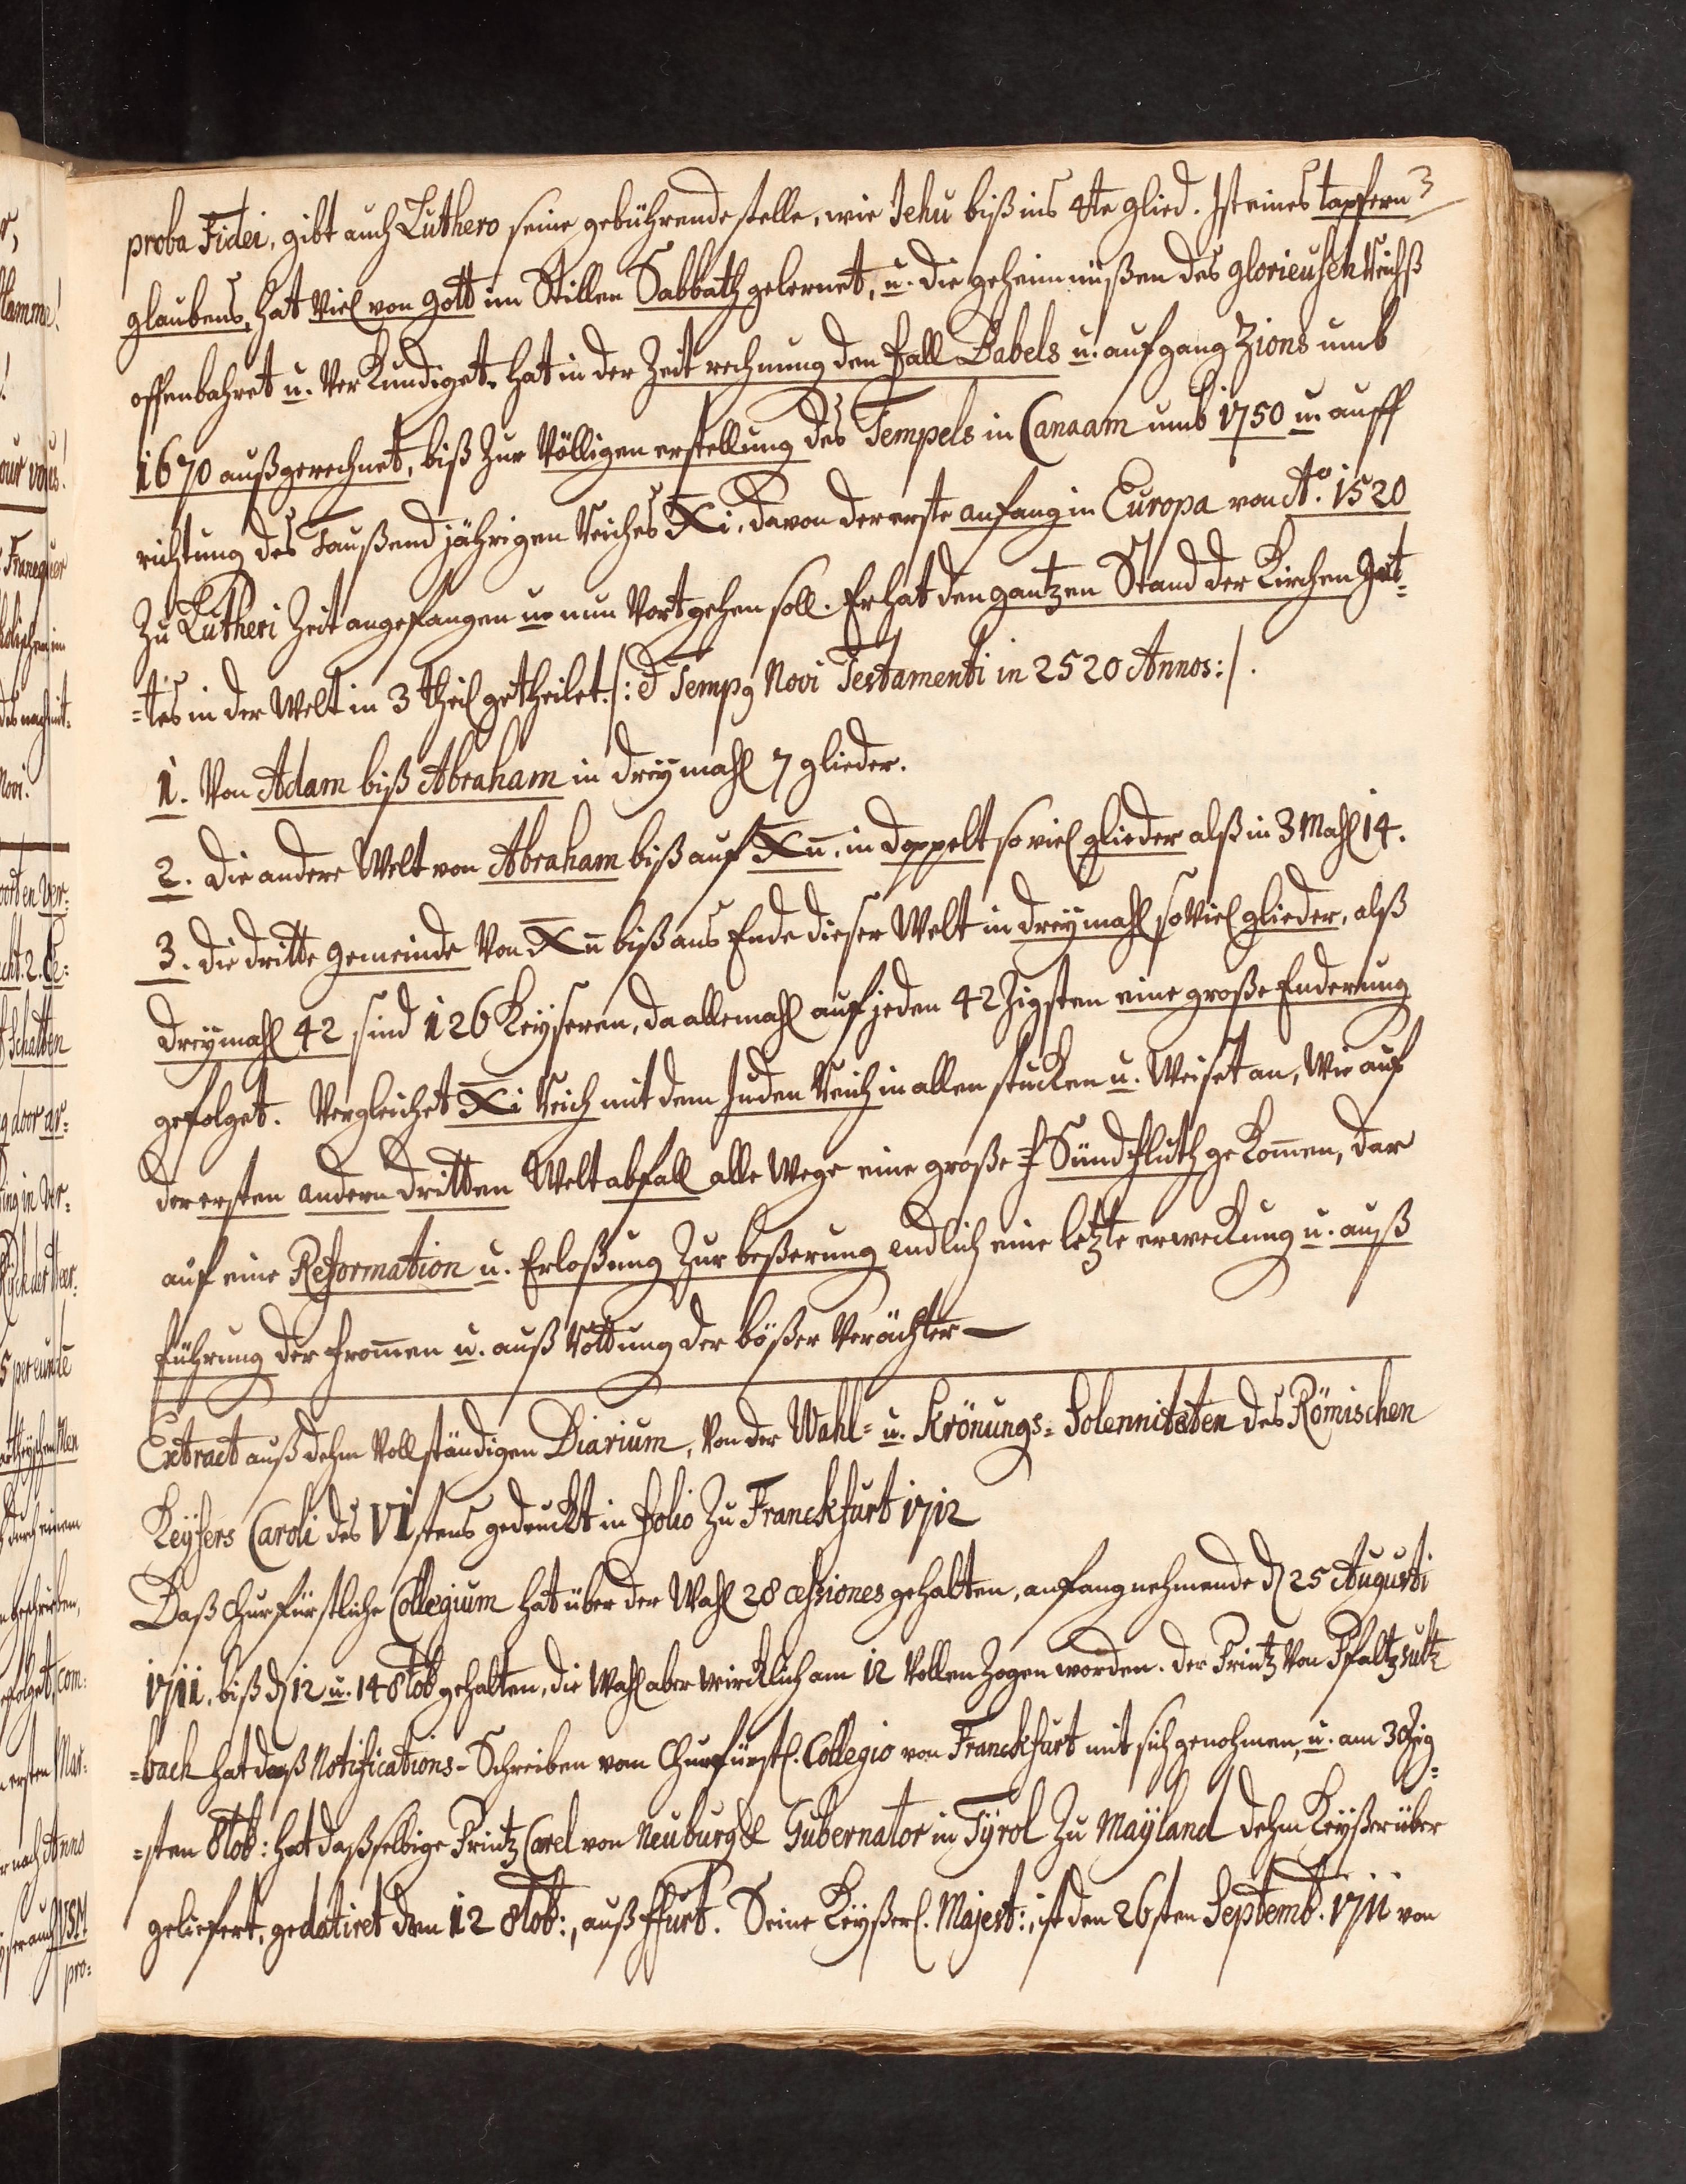 proba Fidei, gibt auch Luthero seine gebührende stelle, wie Jehu biß ins 4te glied. Ist eines tapfern
glaubens, hat viel von Gott im Stillen Sabbath gelernet, u. die geheimnüßen des glorieusen Reichß
offenbahret u. verkundiget. hat in der Zeit rechnung den fall Babels u. aufgang Zions umb
1670 außgerechnet, biß zur völligen erstellung des Tempels in Canaam umb 1750 u. auff
richtung des Taußend jährigen Reiches Xi, davon der erste anfang in Europa von Ao. 1520
Zu Lutheri Zeit angefangen u. nun vortgehen soll. Er hat den gantzen Stand der Kirchen Got=
=tes in der Welt in 3 theil getheilet. /: Temp9 Novi Testamenti in 2520 Annos :/.
1. Von Adam biß Abraham in dreymahl 7 glieder.
2. Die andere Welt von Abraham biß auf Xū, in doppelt so viel glieder alß in 3 Mahl 14.
3. Die dritte Gemeinde Von Xū biß ans Ende dieser Welt in dreymahl so viel glieder, alß
dreymahl 42 sind 126 Keyseren, da allemahl auf jeden 42zigsten eine große Enderung
gefolget. Vergleichet Xi Reich mit dem Juden Reich in allen stucken u. Weiset an, wie auf
der ersten andern dritten Welt abfall alle Wege eine große Sündfluth gekom̄en, dar
auf eine Reformation u. Erloßung zur beßerung endlich eine letzte erweckung u. auß
führung der from̄en u. auß Rottung der bößer Verächter —
Extract auß dehm Vollständigen Diarium, Von der Wahl- u. Krönungs= Solennitäten des Römischen
Keysers Caroli des VIstens gedruckt in folio Zu Franckfurt 1712
Daß Churfürstliche Collegium hat über der Wahl 28 cessiones gehalten, anfang nehmende d 25 Augusti
1711, biß d 12 u. 14 8tob gehalten, die Wahl aber wircklich am 12 Vollenzogen worden. der Printz Von Pfaltzsultz
=bach hat daß Notifications-Schreiben vom Churfürstl. Collegio von Franckfurt mit sich genohmen, u. am 30zig=
=sten 8tob: hat daßselbige Printz Carel von Neuburg Gubernator in Tÿrol Zu Maÿland dehm Keyßer über
geliefert, gedatiret den 12 8tob:, auß ffurt. Seine Keyßerl. Majest:, ist den 26sten Septemb. 1711 von